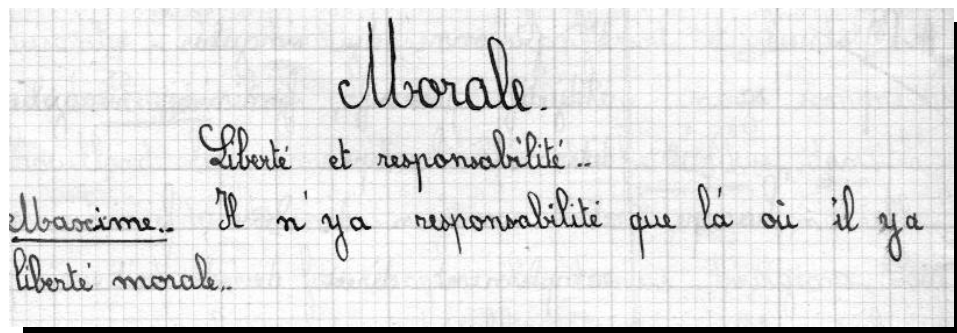 Morale.
Liberté et responsabilité..
Maxime.. Il n'ya responsabilité que là où il ya
liberté morale..